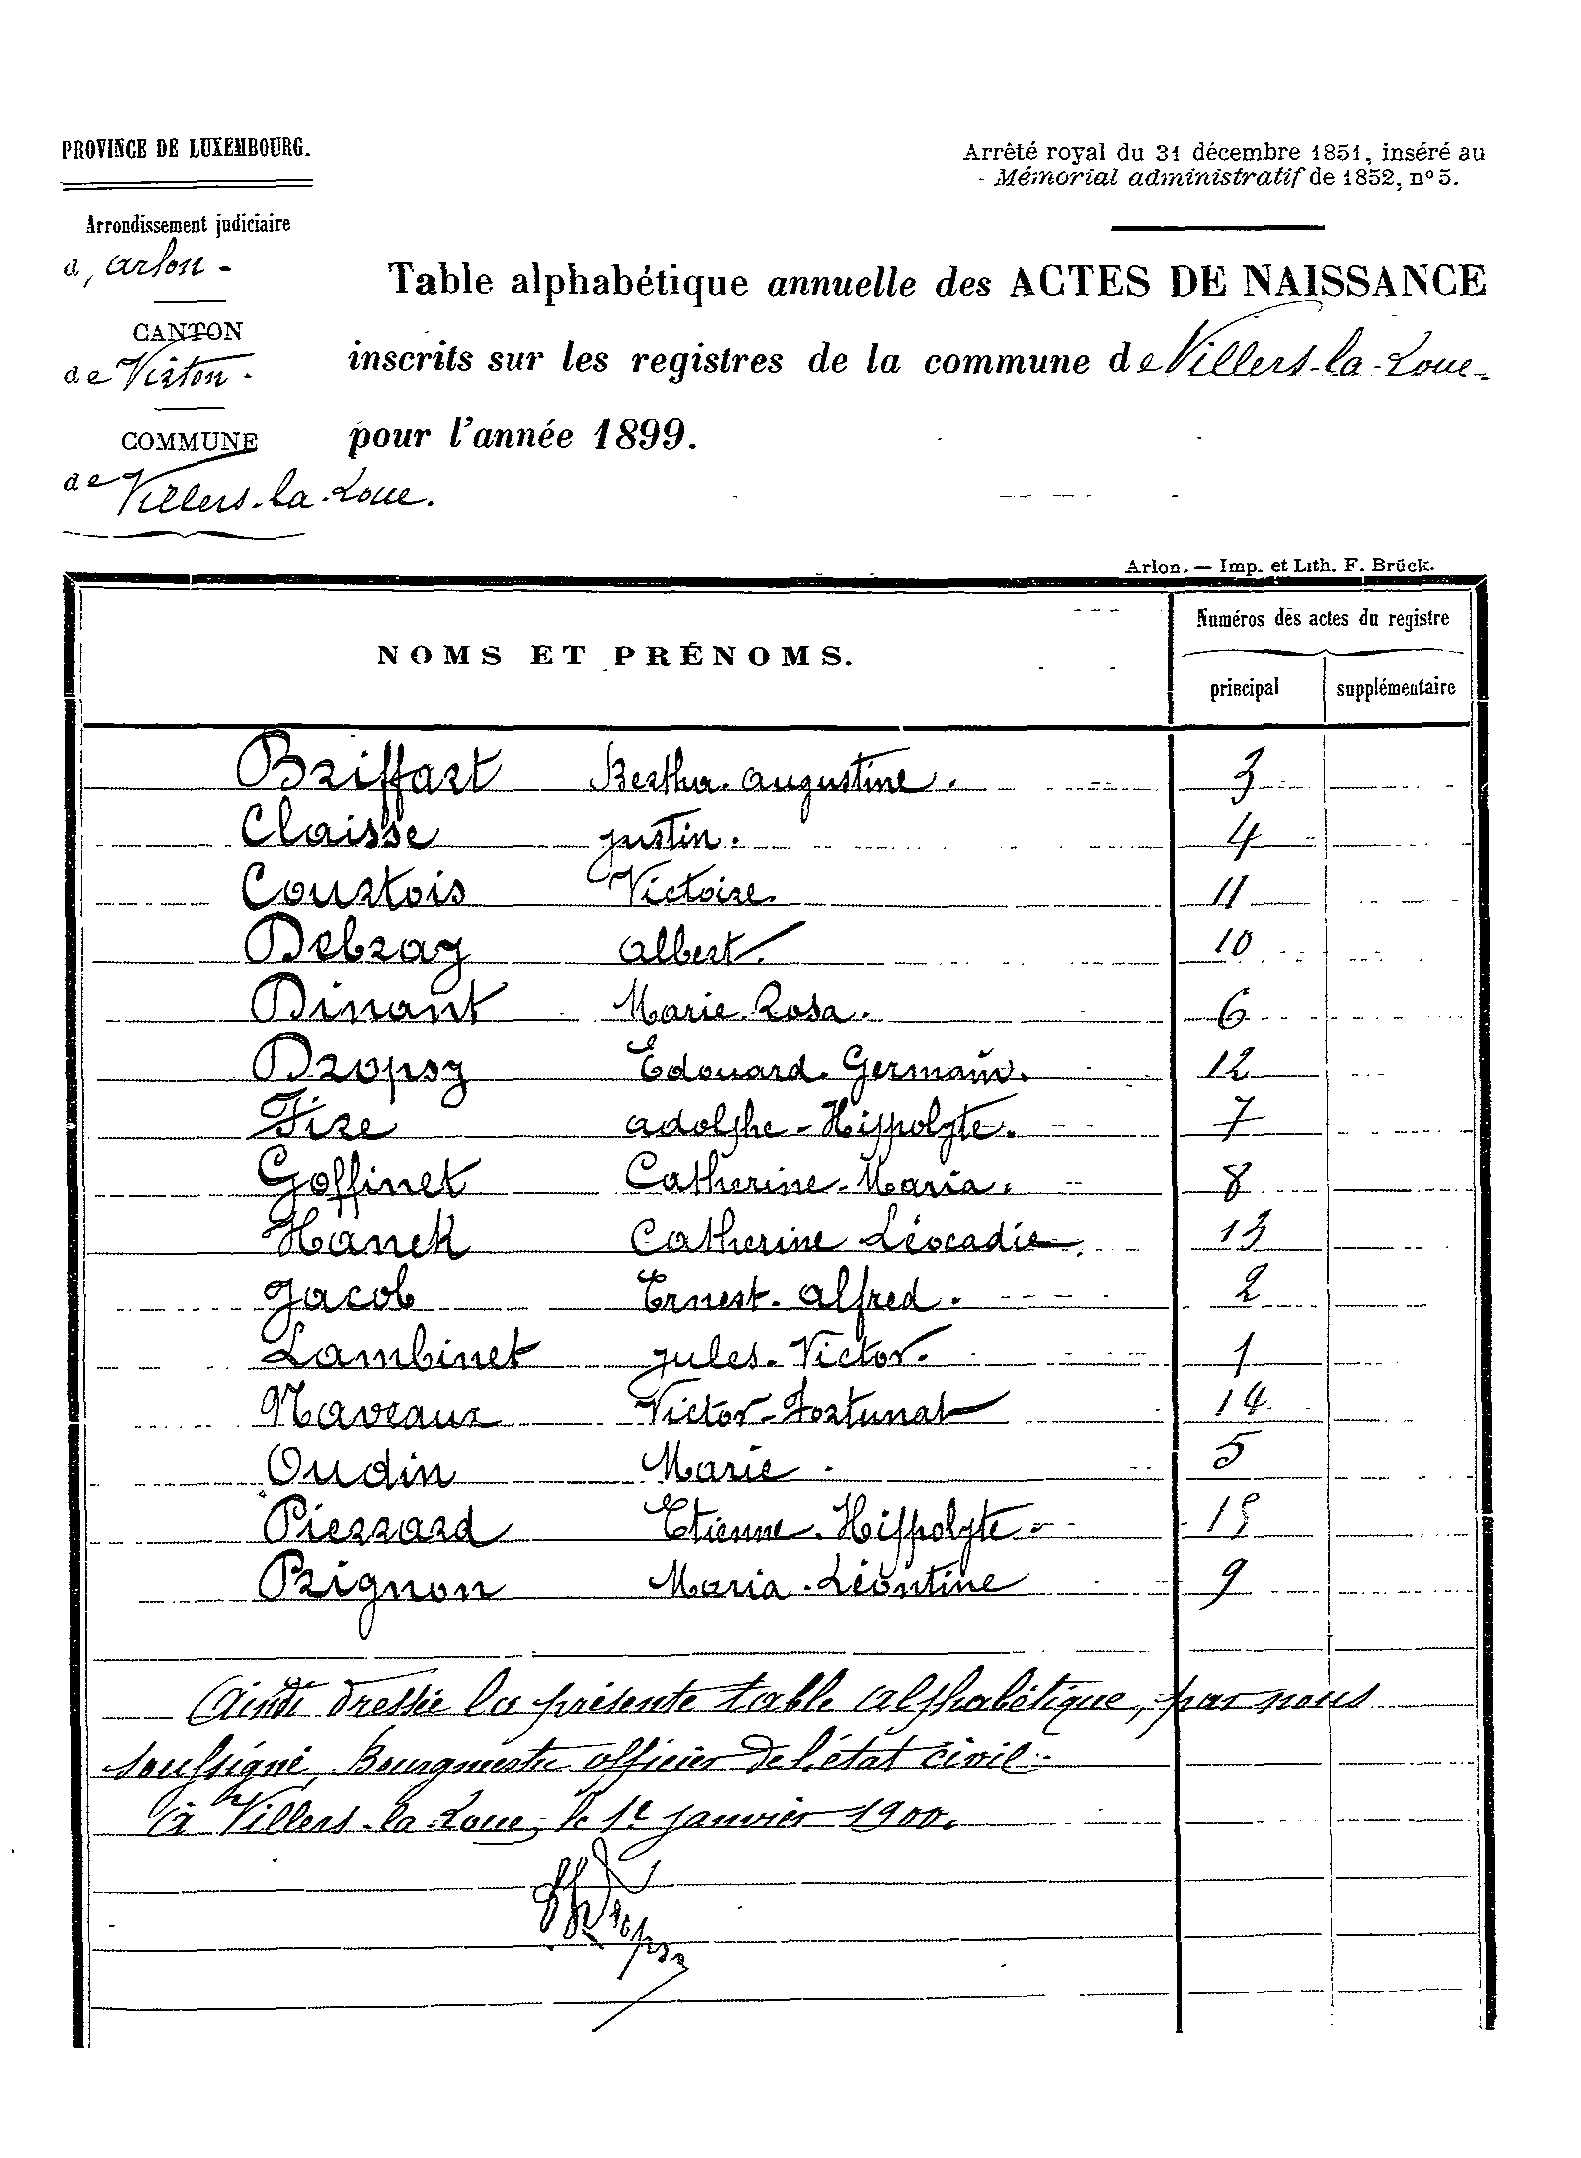 PROVINCE DE LUXEMBOURG.
Arrêté royal du 31 décembre 1851, inséré au
Mémorial administratif de 1852, nº 5.
Arrondissement judiciaire
d'arlon -
CANTON
de Virton -
COMMUNE
de Villers-la-Loue.
Table alphabétique annuelle des ACTES DE NAISSANCE
inscrits sur les registres de la commune de Villers-la-Loue-
pour l'année 1899.
Arlon. — Imp. et Lith. F. Brück.
NOMS ET PRÉNOMS.
Numéros des actes du registre
principal supplémentaire
Briffart Bertha-augustine. 3
Claisse justin. 4
Courtois Victoire. 11
Debray albert. 10
Dinant Marie-Rosa. 6
Dropsy Edouard-Germain. 12
Fize adolphe-Hippolyte. 7
Goffinet Catherine-Maria. 8
Hanck Catherine Léocadie 13
Jacob Ernest-alfred. 2
Lambinet jules-Victor. 1
Naveaux Victor-Fortunat 14
Oudin Marie 5
Pierrard Etienne-Hippolyte 15
Prignon Maria-Léontine 9
Ainsi dressée la présente table alphabétique, par nous
soussigné, Bourgmestre officier de l'état civil
à Villers-la-Loue, le 1er janvier 1900.